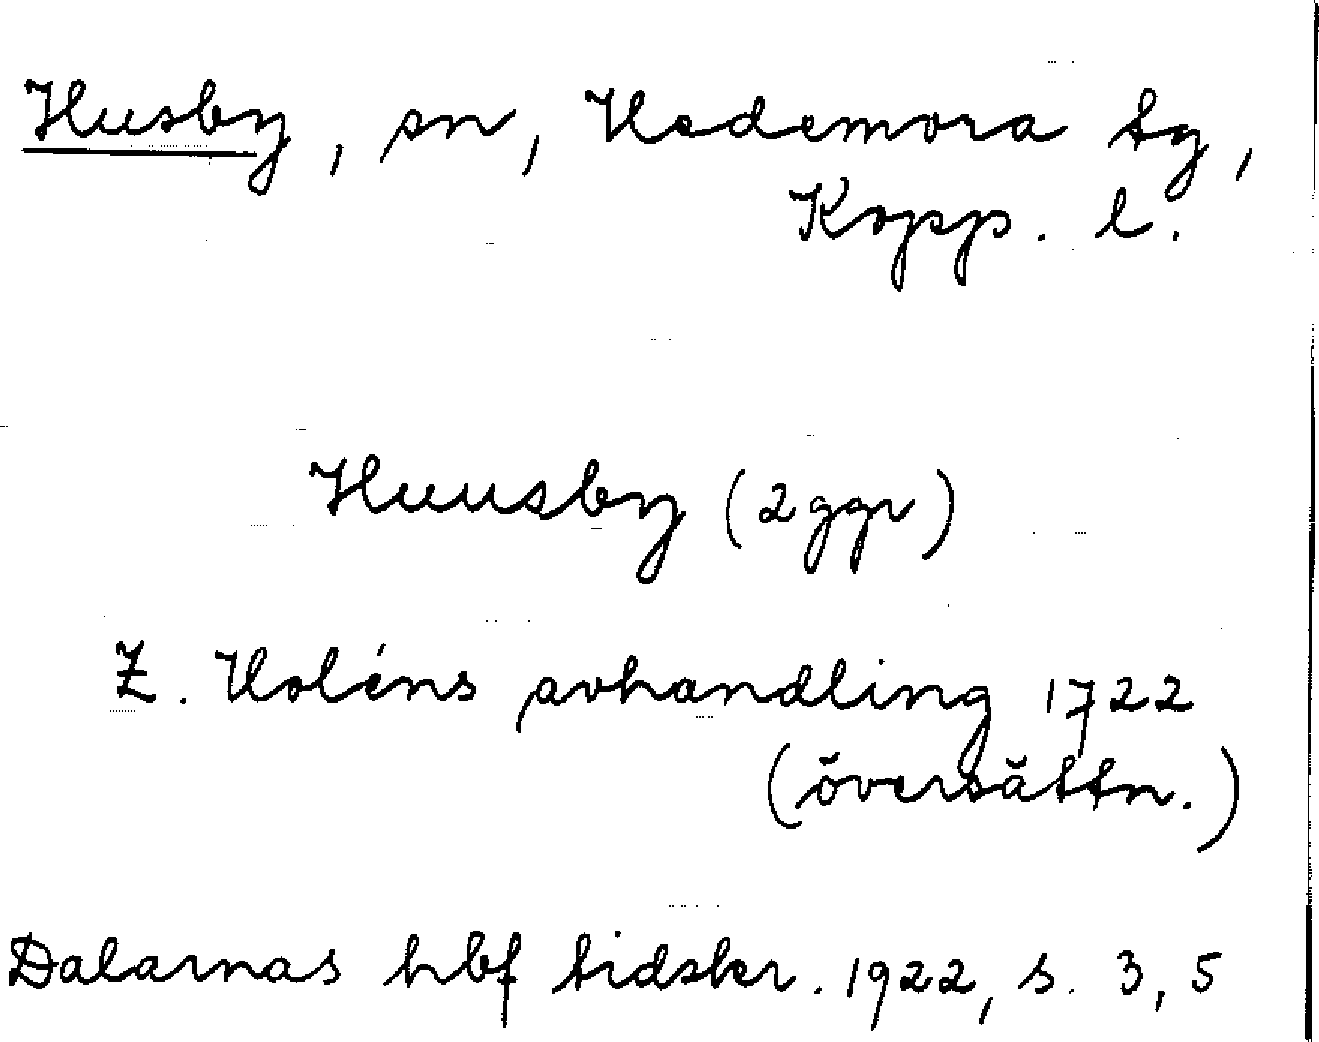 Husby, sn, Hedemora tg,
Kopp. l.
Huusby (2 ggr)
Z. Holéns avhandling 1722
(översättn.)
Dalarnas hbf tidskr. 1922, s. 3, 5